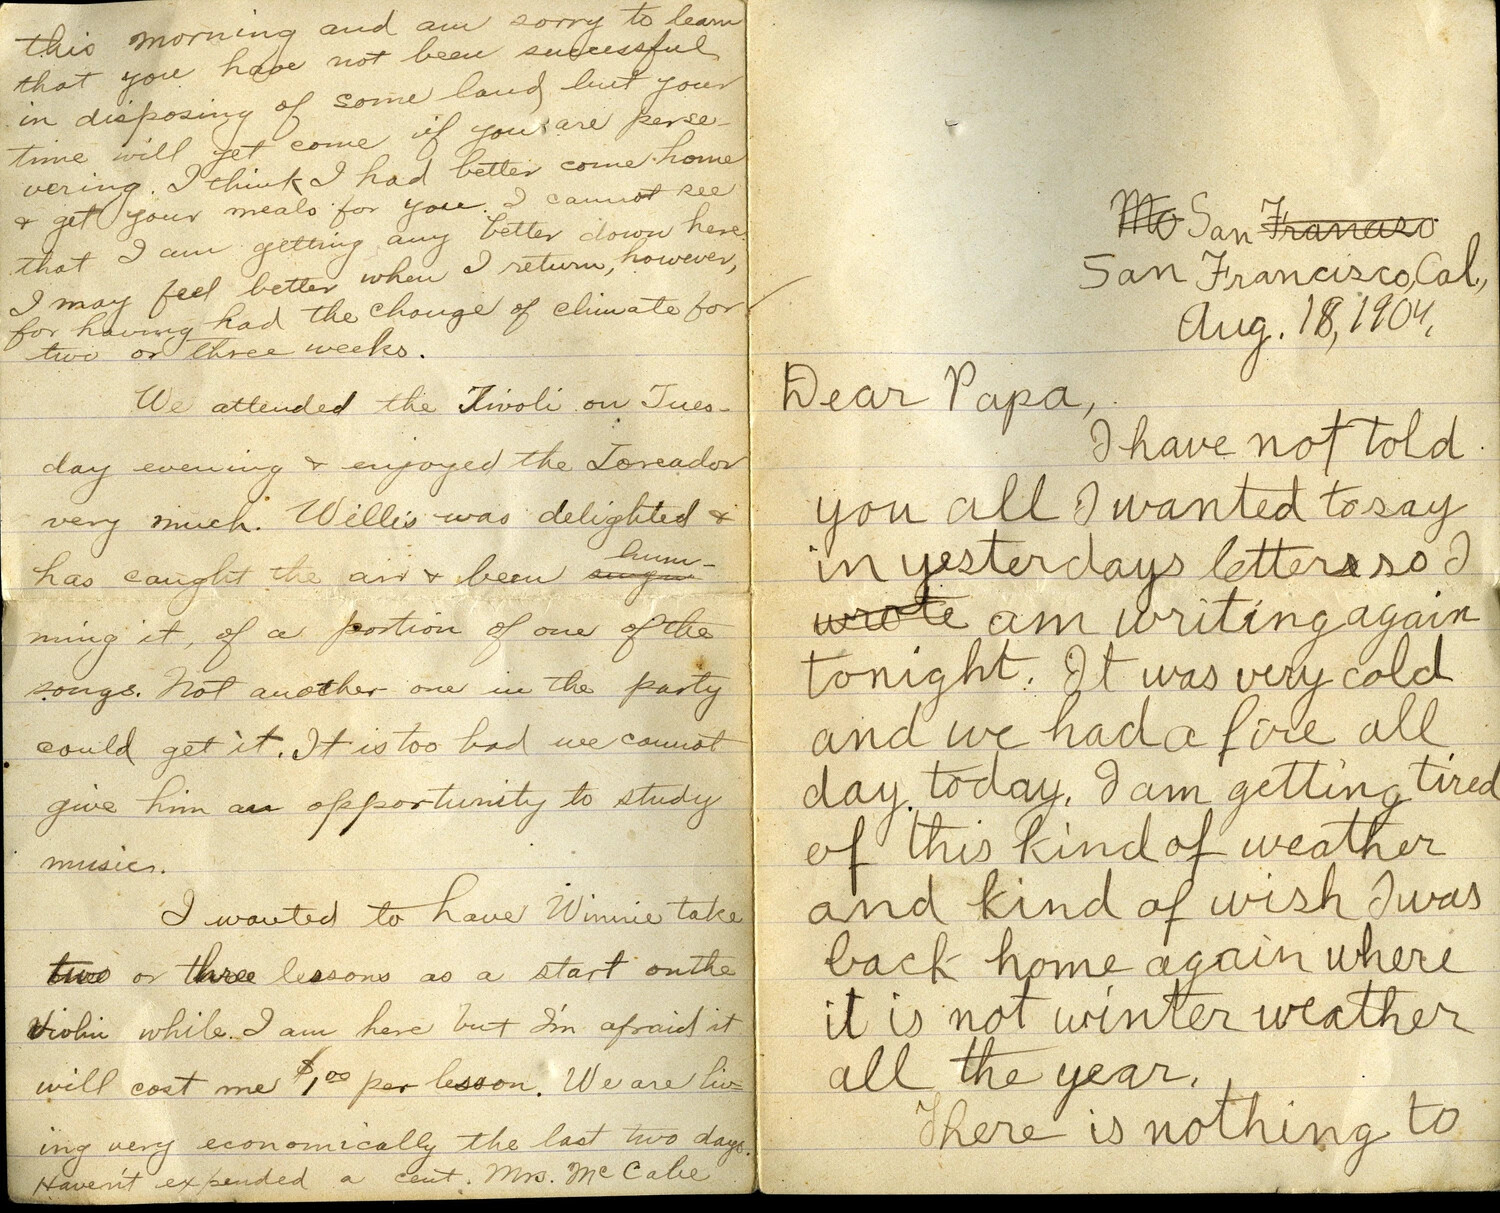 this morning and am sorry to learn
that you have not been successful
in disposing of some land, but your
time will yet come if you are perse-
vering. I think I had better come home
& get your meals for you. I cannot see
that I am getting any better down here
I may feel better when I return, however,
for having had the change of climate for
two or three weeks.
We attended the Tivoli on Tues-
day evening & enjoyed the Toreador
very much. Willis was delighted &
has caught the air & been hum-
ming it, of a portion of one of the
songs. Not another one in the party
could get it. It is too bad we cannot
give him an opportunity to study
music.
I wanted to have Winnie take
two or three lessons as a start on the
Violin while I am here but I'm afraid it
will cost me $1,00 per lesson. We are liv-
ing very economically the last two days.
Haven't expended a cent. Mrs. McCabe
Mo San Francisco
San Francisco, Cal.,
Aug. 18, 1904.
Dear Papa,
I have not told
you all I wanted to say
in yesterdays letters so I
wrote am writing again
tonight. It was very cold
and we had a fire all
day, today. I am getting tired
of this kind of weather
and kind of wish I was
back home again where
it is not winter weather
all the year.
There is nothing to